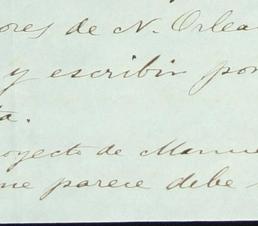 ores de N. Orlea
y escribir por
ta.
royecto de Manue
me parece debe